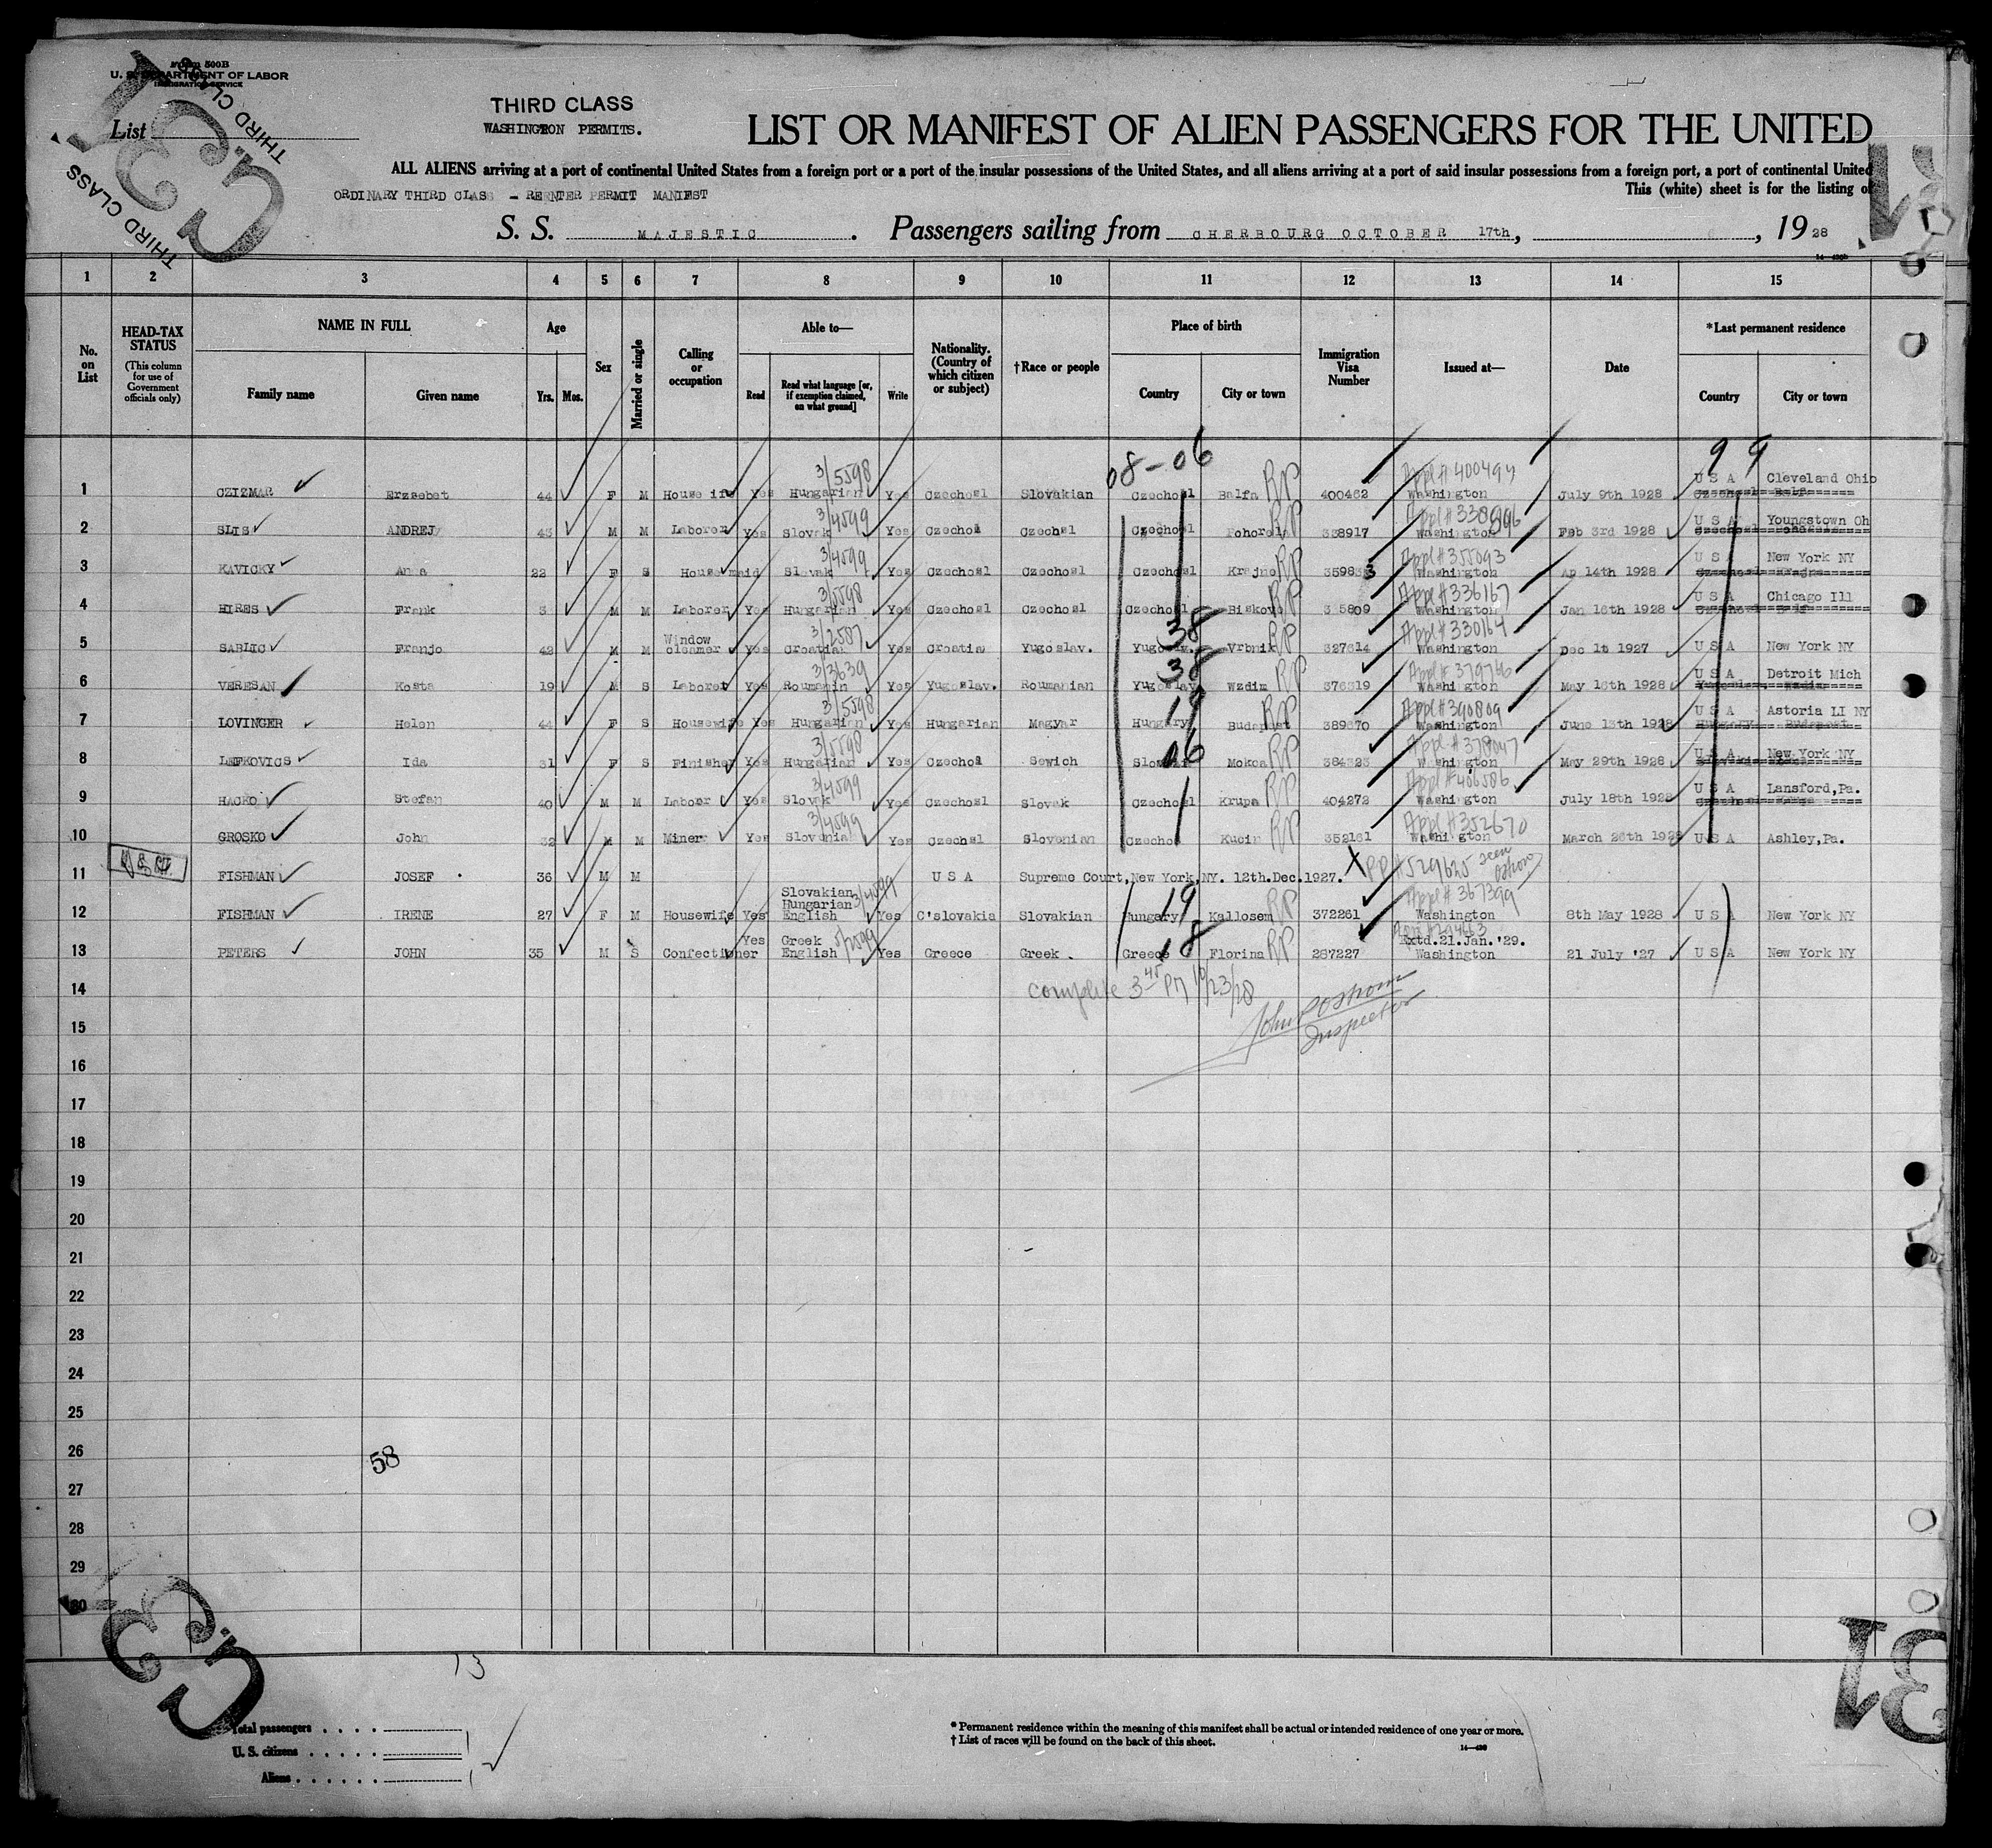 Form 500B
U. S. DEPARTMENT OF LABOR
IMMIGRATION SERVICE
List
THIRD CLASS
THIRD CLASS
THIRD CLASS
WASHINGTON PERMITS.
LIST OR MANIFEST OF ALIEN PASSENGERS FOR THE UNITED
ALL ALIENS arriving at a port of continental United States from a foreign port or a port of the insular possessions of the United States, and all aliens arriving at a port of said insular possessions from a foreign port, a port of continental United
ORDINARY THIRD CLASS - REENTER PERMIT MANIEST
This (white) sheet is for the listing of
S. S. MAJESTIC . Passengers sailing from CHERBOURG OCTOBER 17th, , 19 28
31
1 2 3 4 5 6 7 8 9 10 11 12 13 14 15
No. on List
HEAD-TAX STATUS (This column for use of Government officials only)
NAME IN FULL Family name Given name
Age Yrs. Mos.
Sex
Married or single
Calling or occupation
Able to— Read Read what language [or, if exemption claimed, on what ground] Write
Nationality. (Country of which citizen or subject)
†Race or people
Place of birth Country City or town
Immigration Visa Number
Issued at—
Date
*Last permanent residence Country City or town
08-06 9 9
3/5598 Appl# 400497
1 CZIZMAR Erzsebet 44 F M Housewife Yes Hungarian Yes Czechosl Slovakian Czechosl Balfa RP 400462 Washington July 9th 1928 U S A Cleveland Ohio
3/4599
2 SLIS ANDREJ 43 M M Laborer Yes Slovak Yes Czechosl Czechosl Czechosl Pohorela RP 338917 Washington Feb 3rd 1928 U S A Youngstown Oh
3/4599 Appl# 355093
3 KAVICKY Anna 22 F S Housemaid Slovak Yes Czechosl Czechosl Czechosl Krajne RP Washington Ap 14th 1928 U S A New York NY
3/5598 Appl# 336167
4 HIRES Frank M M Laborer Yes Hungarian Yes Czechosl Czechosl Czechosl RP Washington Jan 16th 1928 U S A Chicago Ill
3/2587 38 Appl# 330164
5 SARLIC Franjo 42 M M Window cleamer Yes Croatian Yes Croatia Yugoslav. Yugoslav. Vrbnik RP 327614 Washington U S A New York NY
3/3639 38 Appl# 379766
6 VERESAN Kosta 19 M S Laborer Yes Roumanin Yes Yugoslav. Roumanian Yugoslav Wzdin RP 376319 Washington May 16th 1928 U S A Detroit Mich
3/5598 19 Appl# 390809
7 LOVINGER Helen 44 F S Housewife Yes Hungarian Yes Hungarian Magyar Hungary Budapest RP 389670 Washington June 13th 1928 U S A Astoria LI NY
3/5598 06 Appl# 378047
8 LEFKOVICS Ida 31 F S Finisher Yes Hungarian Yes Czechosl Sewich Mokca RP 384323 Washington May 29th 1928 U S A New York NY
3/4599 Appl# 406586
9 HACKO Stefan 40 M M Laboer Yes Slovak Yes Czechosl Slovak Czechosl Krupa RP 404272 Washington July 18th 1928 U S A Lansford,Pa.
3/4599 Appl# 352670
10 GROSKO John 32 M M Miner Yes Slovenia Yes Czechsl Slovenian Czechosl Kucin RP 352161 Washington March 26th 1928 U S A Ashley,Pa.
11 FISHMAN JOSEF 36 M M U S A Supreme Court,New York,NY. 12th.Dec.1927. X PP# 529625 seen Oshorn
Slovakian
Hungarian 3/4599 Appl# 367399
12 FISHMAN IRENE 27 F M Housewife Yes English Yes C'slovakia Slovakian Hungary 19 Kallosem RP 372261 Washington 8th May 1928 U S A New York NY
Yes Greek Extd.21.Jan.'29.
13 PETERS JOHN 35 M S Confectioner English Yes Greece Greek Greece 18 Florina RP 287227 Washington 21 July '27 U S A New York NY
14 complete 3 45 PM 10/23/28
15 Inspector
16
17
18
19
20
21
22
23
24
25
26 58
27
28
29
30
13
31
Total passengers
U. S. citizens
Aliens
* Permanent residence within the meaning of this manifest shall be actual or intended residence of one year or more.
† List of races will be found on the back of this sheet.